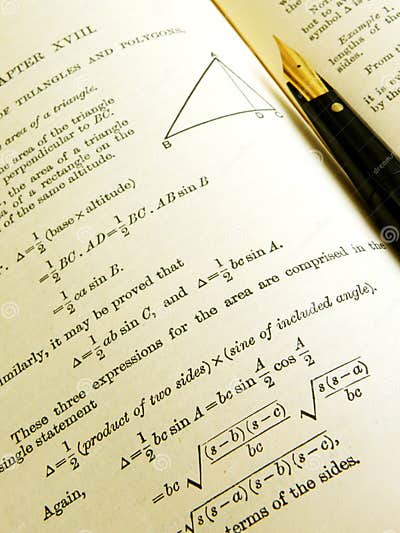 APTER XVIII
OF TRIANGLES AND POLYGONS,
area of a triangle.
area of the triangle
perpendicular to BC.
the area of a triangle
of a rectangle on the
of the same altitude.
Δ=1/2 (base × altitude)
=1/2 BC . AD=1/2 BC . AB sin B
=1/2 ca sin B.
imilarly, it may be proved that
Δ=1/2 ab sin C, and Δ=1/2 bc sin A.
These three expressions for the area are comprised in the
single statement
Δ=1/2 (product of two sides) × (sine of included angle).
Again, Δ=1/2 bc sin A = bc sin A/2 cos A/2
=bc √((s−b)(s−c)/bc) √(s(s−a)/bc)
=√(s(s−a)(s−b)(s−c)),
terms of the sides.
A
B
D
C
Example 1.
lengths of the
sides.
From th
it is
by the